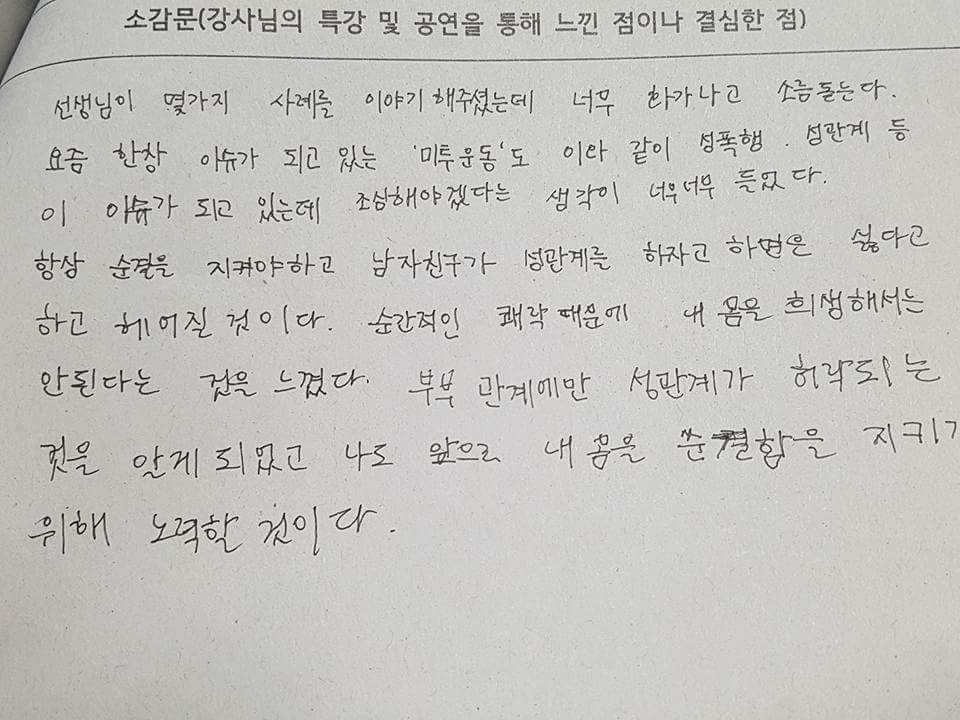 소감문(강사님의 특강 및 공연을 통해 느낀 점이나 결심한 점)
선생님이 몇가지 사례를 이야기해주셨는데 너무 화가나고 소름돋는다.
요즘 한창 이슈가 되고 있는 '미투운동'도 이와 같이 성폭행. 성관계 등
이 이슈가 되고 있는데 조심해야겠다는 생각이 너무너무 들었다.
항상 순결을 지켜야하고 남자친구가 성관계를 하자고 하면은 싫다고
하고 헤어질 것이다. 순간적인 쾌락때문에 내 몸을 희생해서는
안된다는 것을 느꼈다. 부부 관계에만 성관계가 허락되는
것을 알게 되었고 나도 앞으로 내 몸을 순결함을 지키기
위해 노력할 것이다.